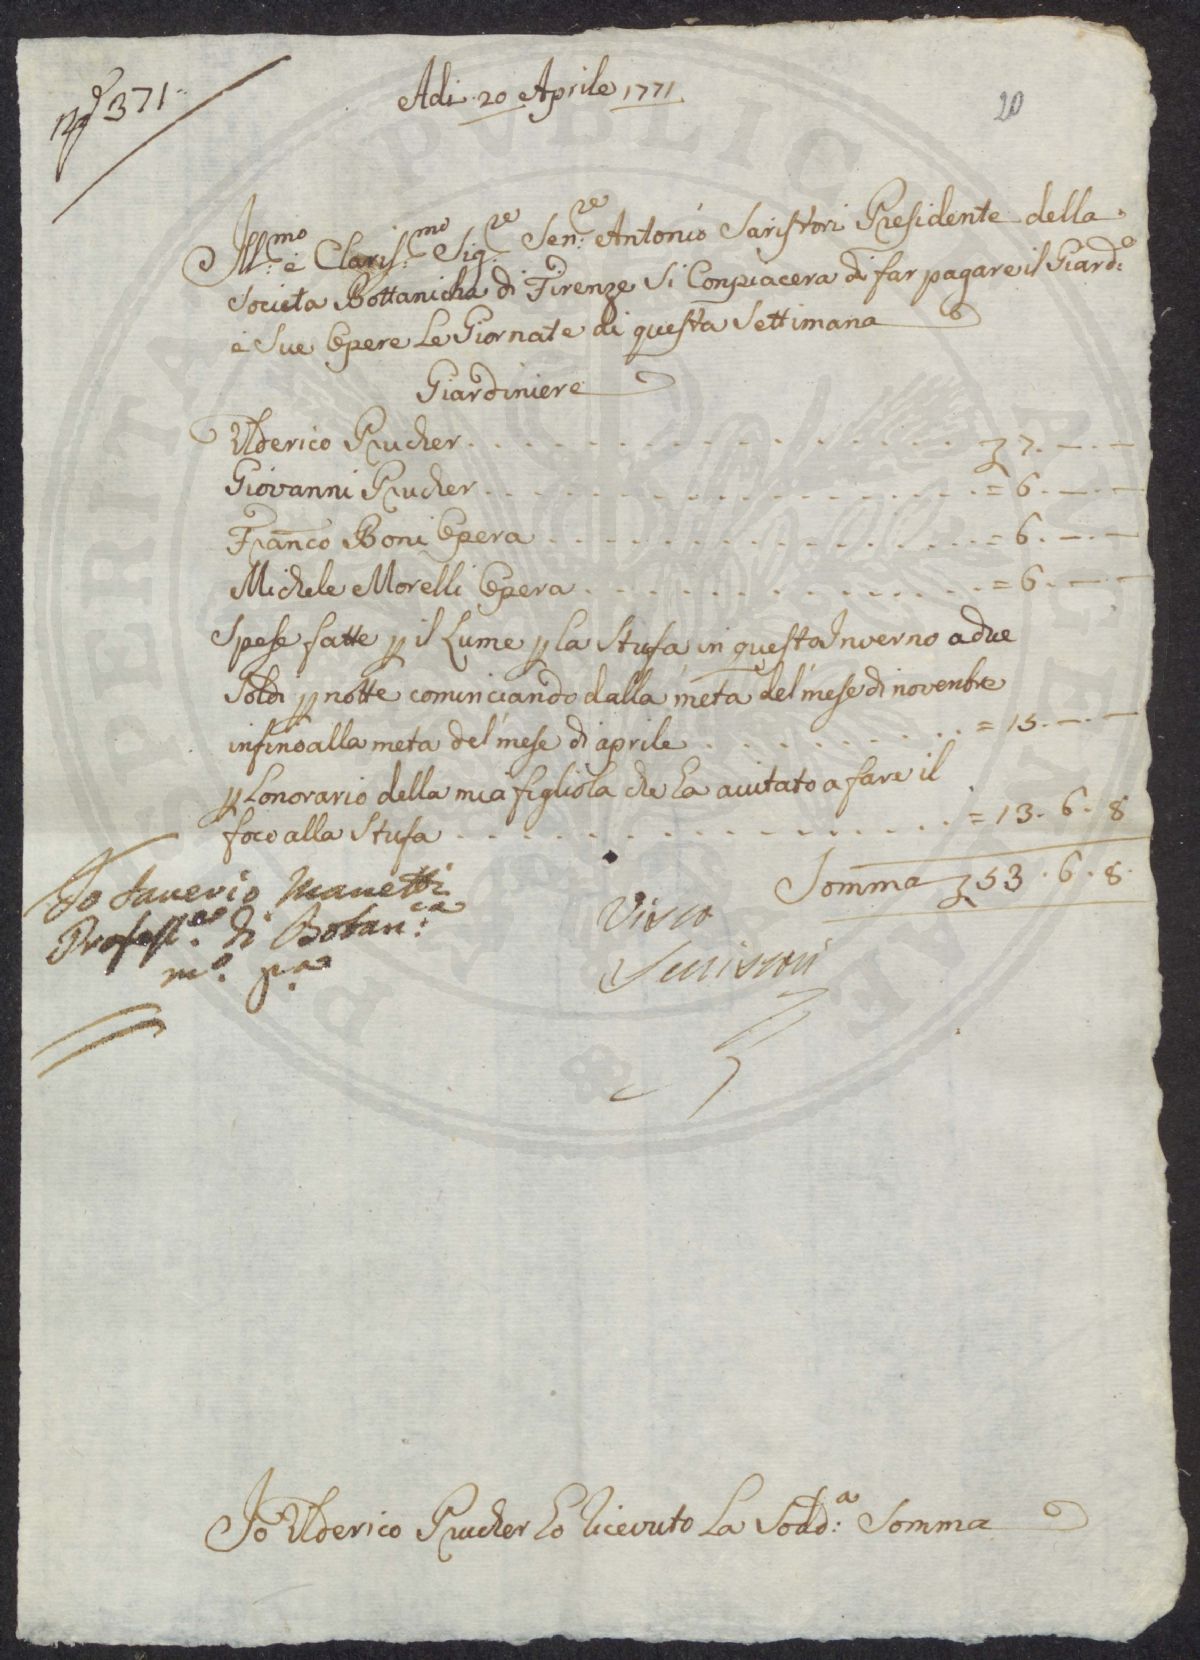 N.º 371
Adi 20 Aprile 1771
20
Ill:mo e Claris:mo Sig:re Sen:re Antonio Saristori Presidente della
Societa Bottanicha di Firenze Si Conpiacera di far pagare il Giard:e
e Sue Opere Le Giornate di questa Settimana
Giardiniere
Ulderico Prucher . . . . . . . . . . . . 7. — . —
Giovanni Prucher . . . . . . . . . . . . = 6. — . —
Franco Boni Opera . . . . . . . . . . . . = 6. — . —
Michele Morelli Opera . . . . . . . . . . = 6. — . —
Spese fatte p il Lume p la Stufa in questo Inverno a due
Soldi p notte cominciando dalla meta del mese di novenbre
infino alla meta del mese di aprile . . . . . . . . = 15. — . —
p Lonorario della mia figliola che la aiutato a fare il
foco alla Stufa . . . . . . . . . . . . = 13. 6. 8
Somma 53. 6. 8.
Io Saverio Manetti
Profess:re di Botan:ca
m:o p:a
Visto
Serristori
Io Ulderico Prucher Lo Ricevuto La Sodd:a Somma
REPERITA PUBLICAMUS